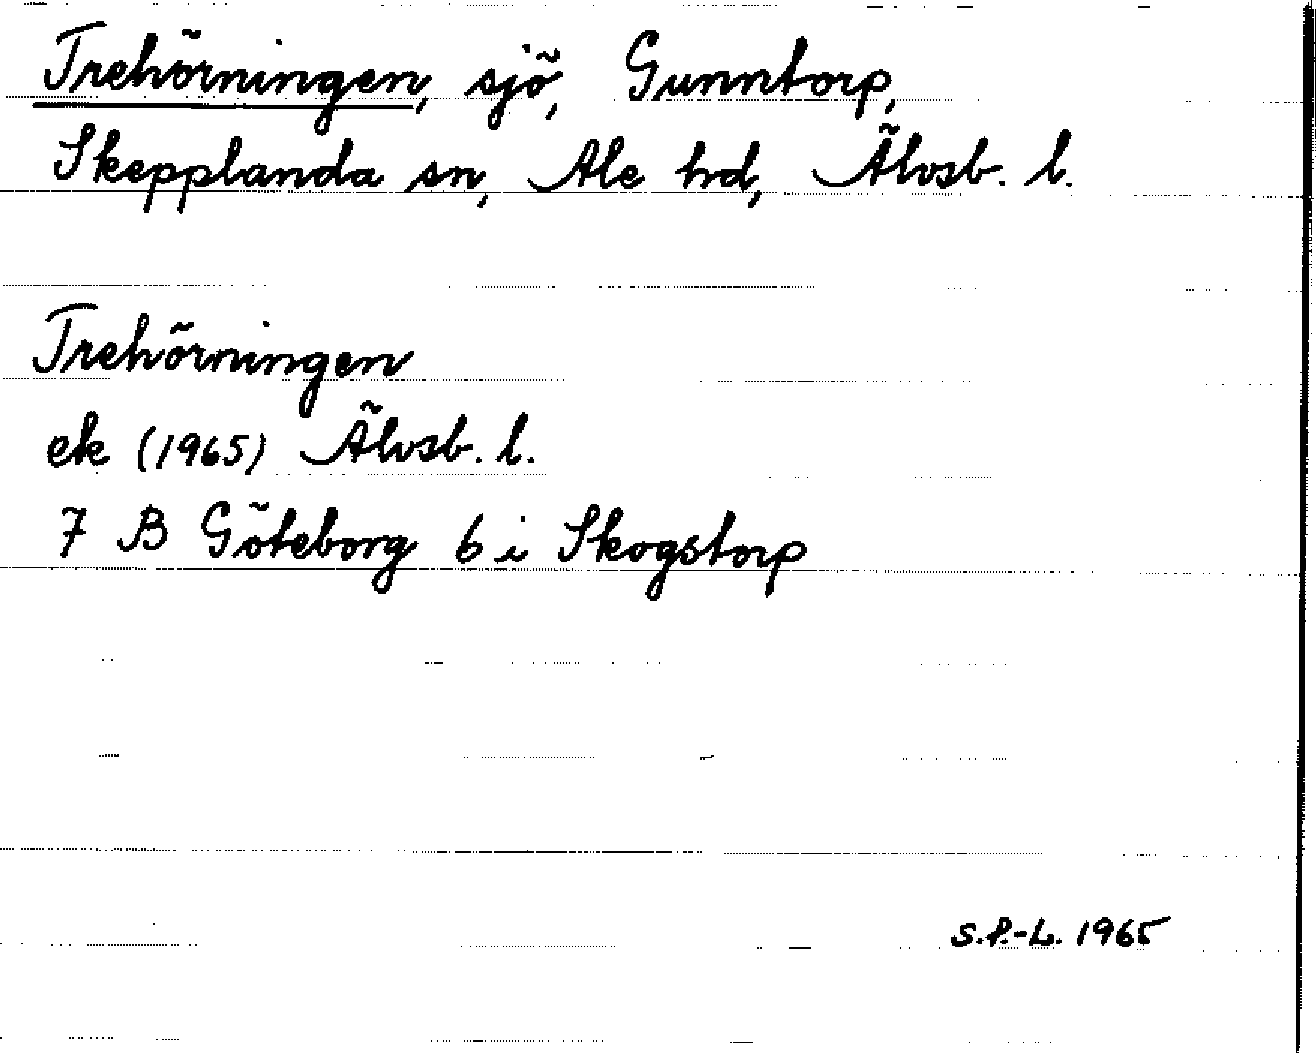 Trehörningen, sjö, Gunntorp,
Skepplanda sn, Ale hd, Älvsb. l.
Trehörningen
ek (1965) Älvsb. l.
7 B Göteborg 6 i Skogstorp
S.P.-L. 1965